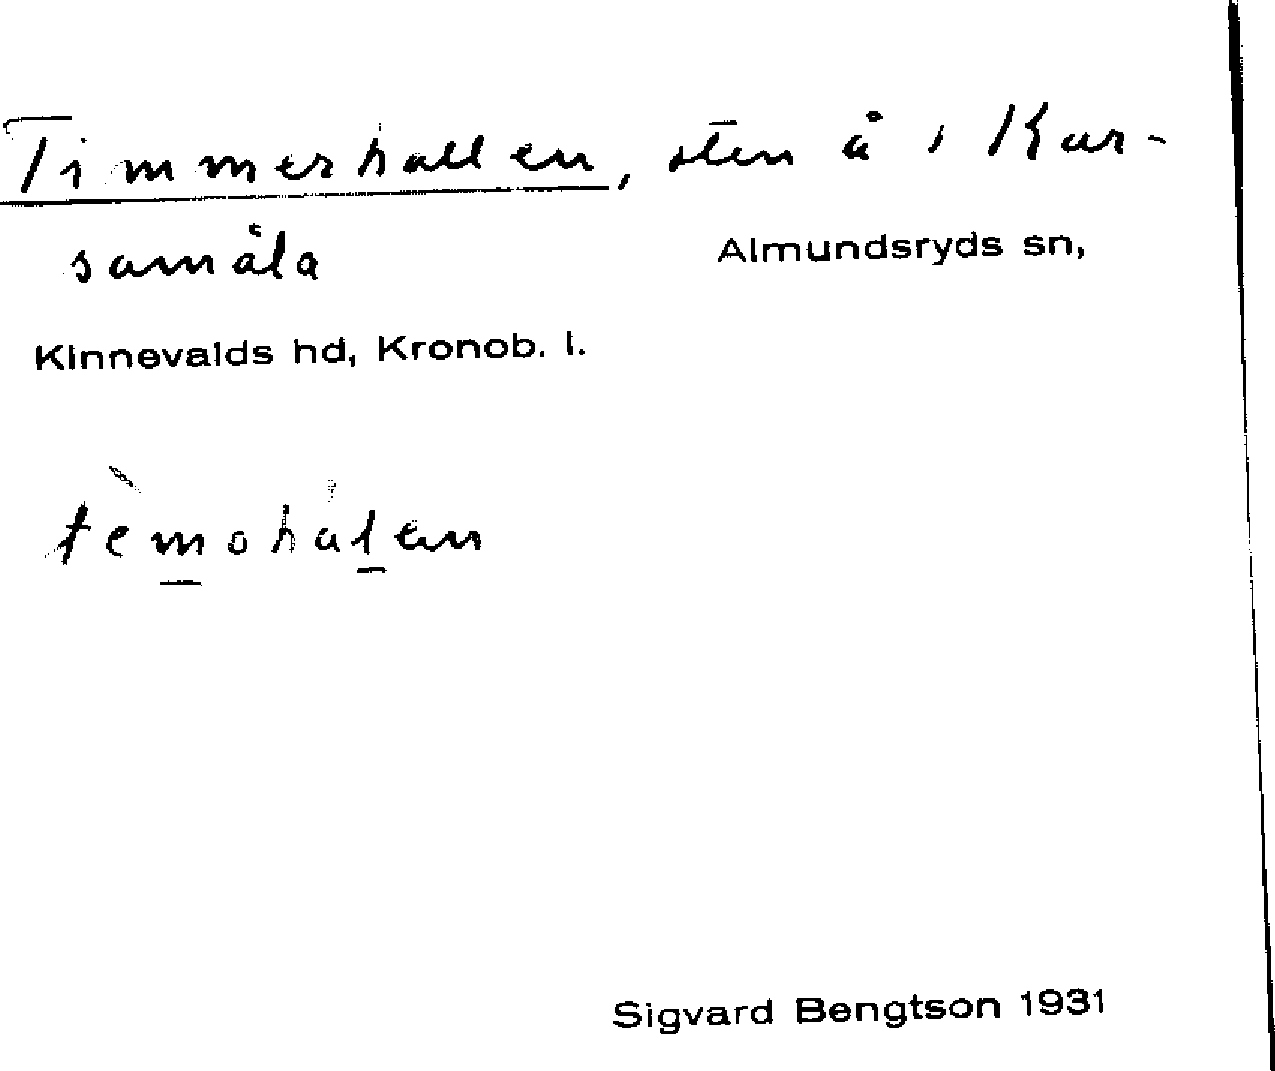 Timmerhallen, sten å i Kur-
samåla Almundsryds sn,
Kinnevalds hd, Kronob. l.
tèmohàlen
Sigvard Bengtson 1931